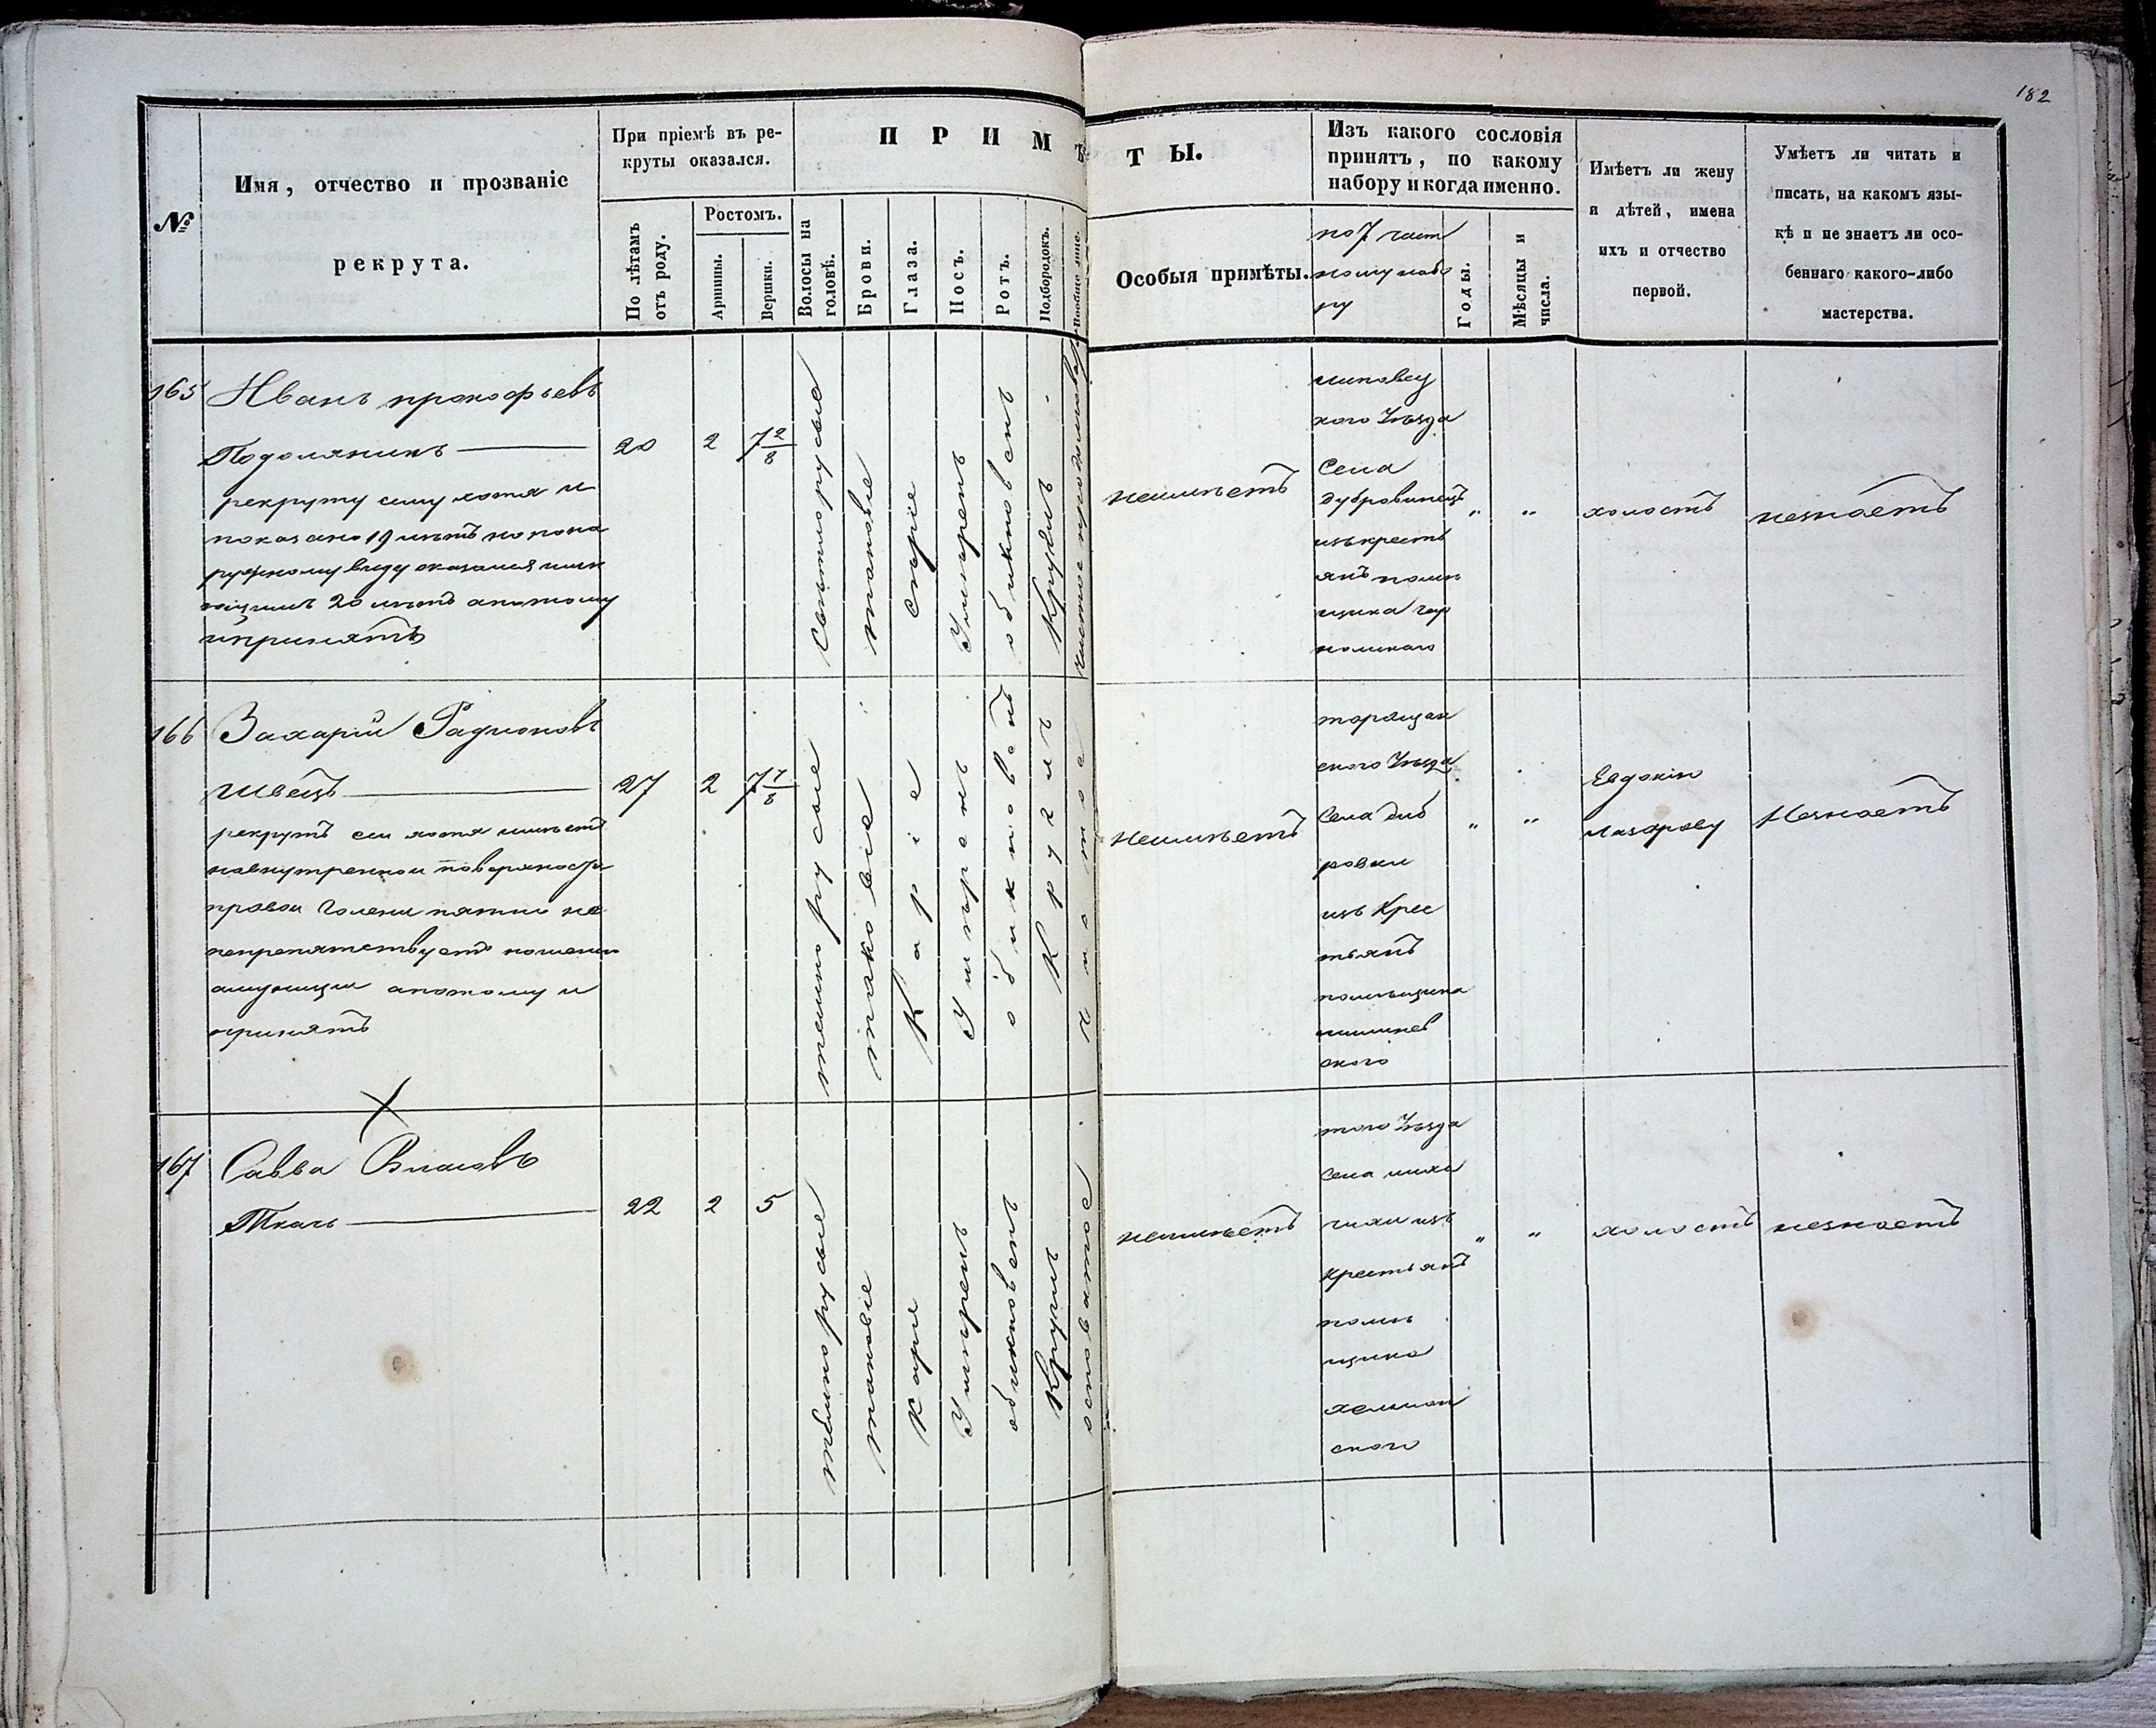 182
№
Имя, отчество и прозваніе
рекрута.
При пріемѣ въ ре-
круты оказался.
По лѣтамъ
отъ роду.
Ростомъ.
Аршины.
Вершки.
ПРИМѢТЫ.
Волосы на
головѣ.
Брови.
Глаза.
Носъ.
Ротъ.
Подбородокъ.
Вообще лице.
Особыя примѣты.
Изъ какого сословія
принятъ, по какому
набору и когда именно.
по 7 част
ному набо
ру
Годы.
Мѣсяцы и
числа.
Имѣетъ ли жену
и дѣтей, имена
ихъ и отчество
первой.
Умѣетъ ли читать и
писать, на какомъ язы-
кѣ и не знаетъ ли осо-
беннаго какого-либо
мастерства.
165
Иванъ прокофьевъ
Подолянинъ
рекруту сему хотя и
показано 19 лѣтъ но пона
ружному виду оказался имѣ
ющимъ 20 лѣтъ апотому
ипринятъ
20
2
7 2/8
Свѣтлорусые
таковіе
сѣріе
Умѣренъ
обикновенъ
Круглъ
чистое продолговат
неимѣетъ
липовец
кого Уѣзда
Села
дубровинецъ
изъкресть
янъ помѣ
щика
" "
холостъ
незнаетъ
166
Захарій Радионовъ
Швецъ
рекрутъ сеи хотя имѣетъ
навнутреннои поверхности
правои Голени пятно но
непрепятствуетъ ношени
амуници апотому и
принятъ
27
2
7 7/8
темно русые
таковіе
Каріе
Умѣренъ
обикновенъ
Круглъ
чистое
Неимѣетъ
таращан
ского Уѣзда
Села диб
ровки
изъ Крес
тьянъ
помѣщика
ского
" "
Евдокію
Лазареву
Незнаетъ
167
Савва Власовъ
Ткачъ
22
2
5
темнорусые
таковіе
Карие
Умѣренъ
обикновенъ
Круглъ
осповатое
неимѣетъ
того Уѣзда
Села лиха
чихи изъ
Крестьянъ
помѣ
щика
ского
" "
холостъ
незнаетъ